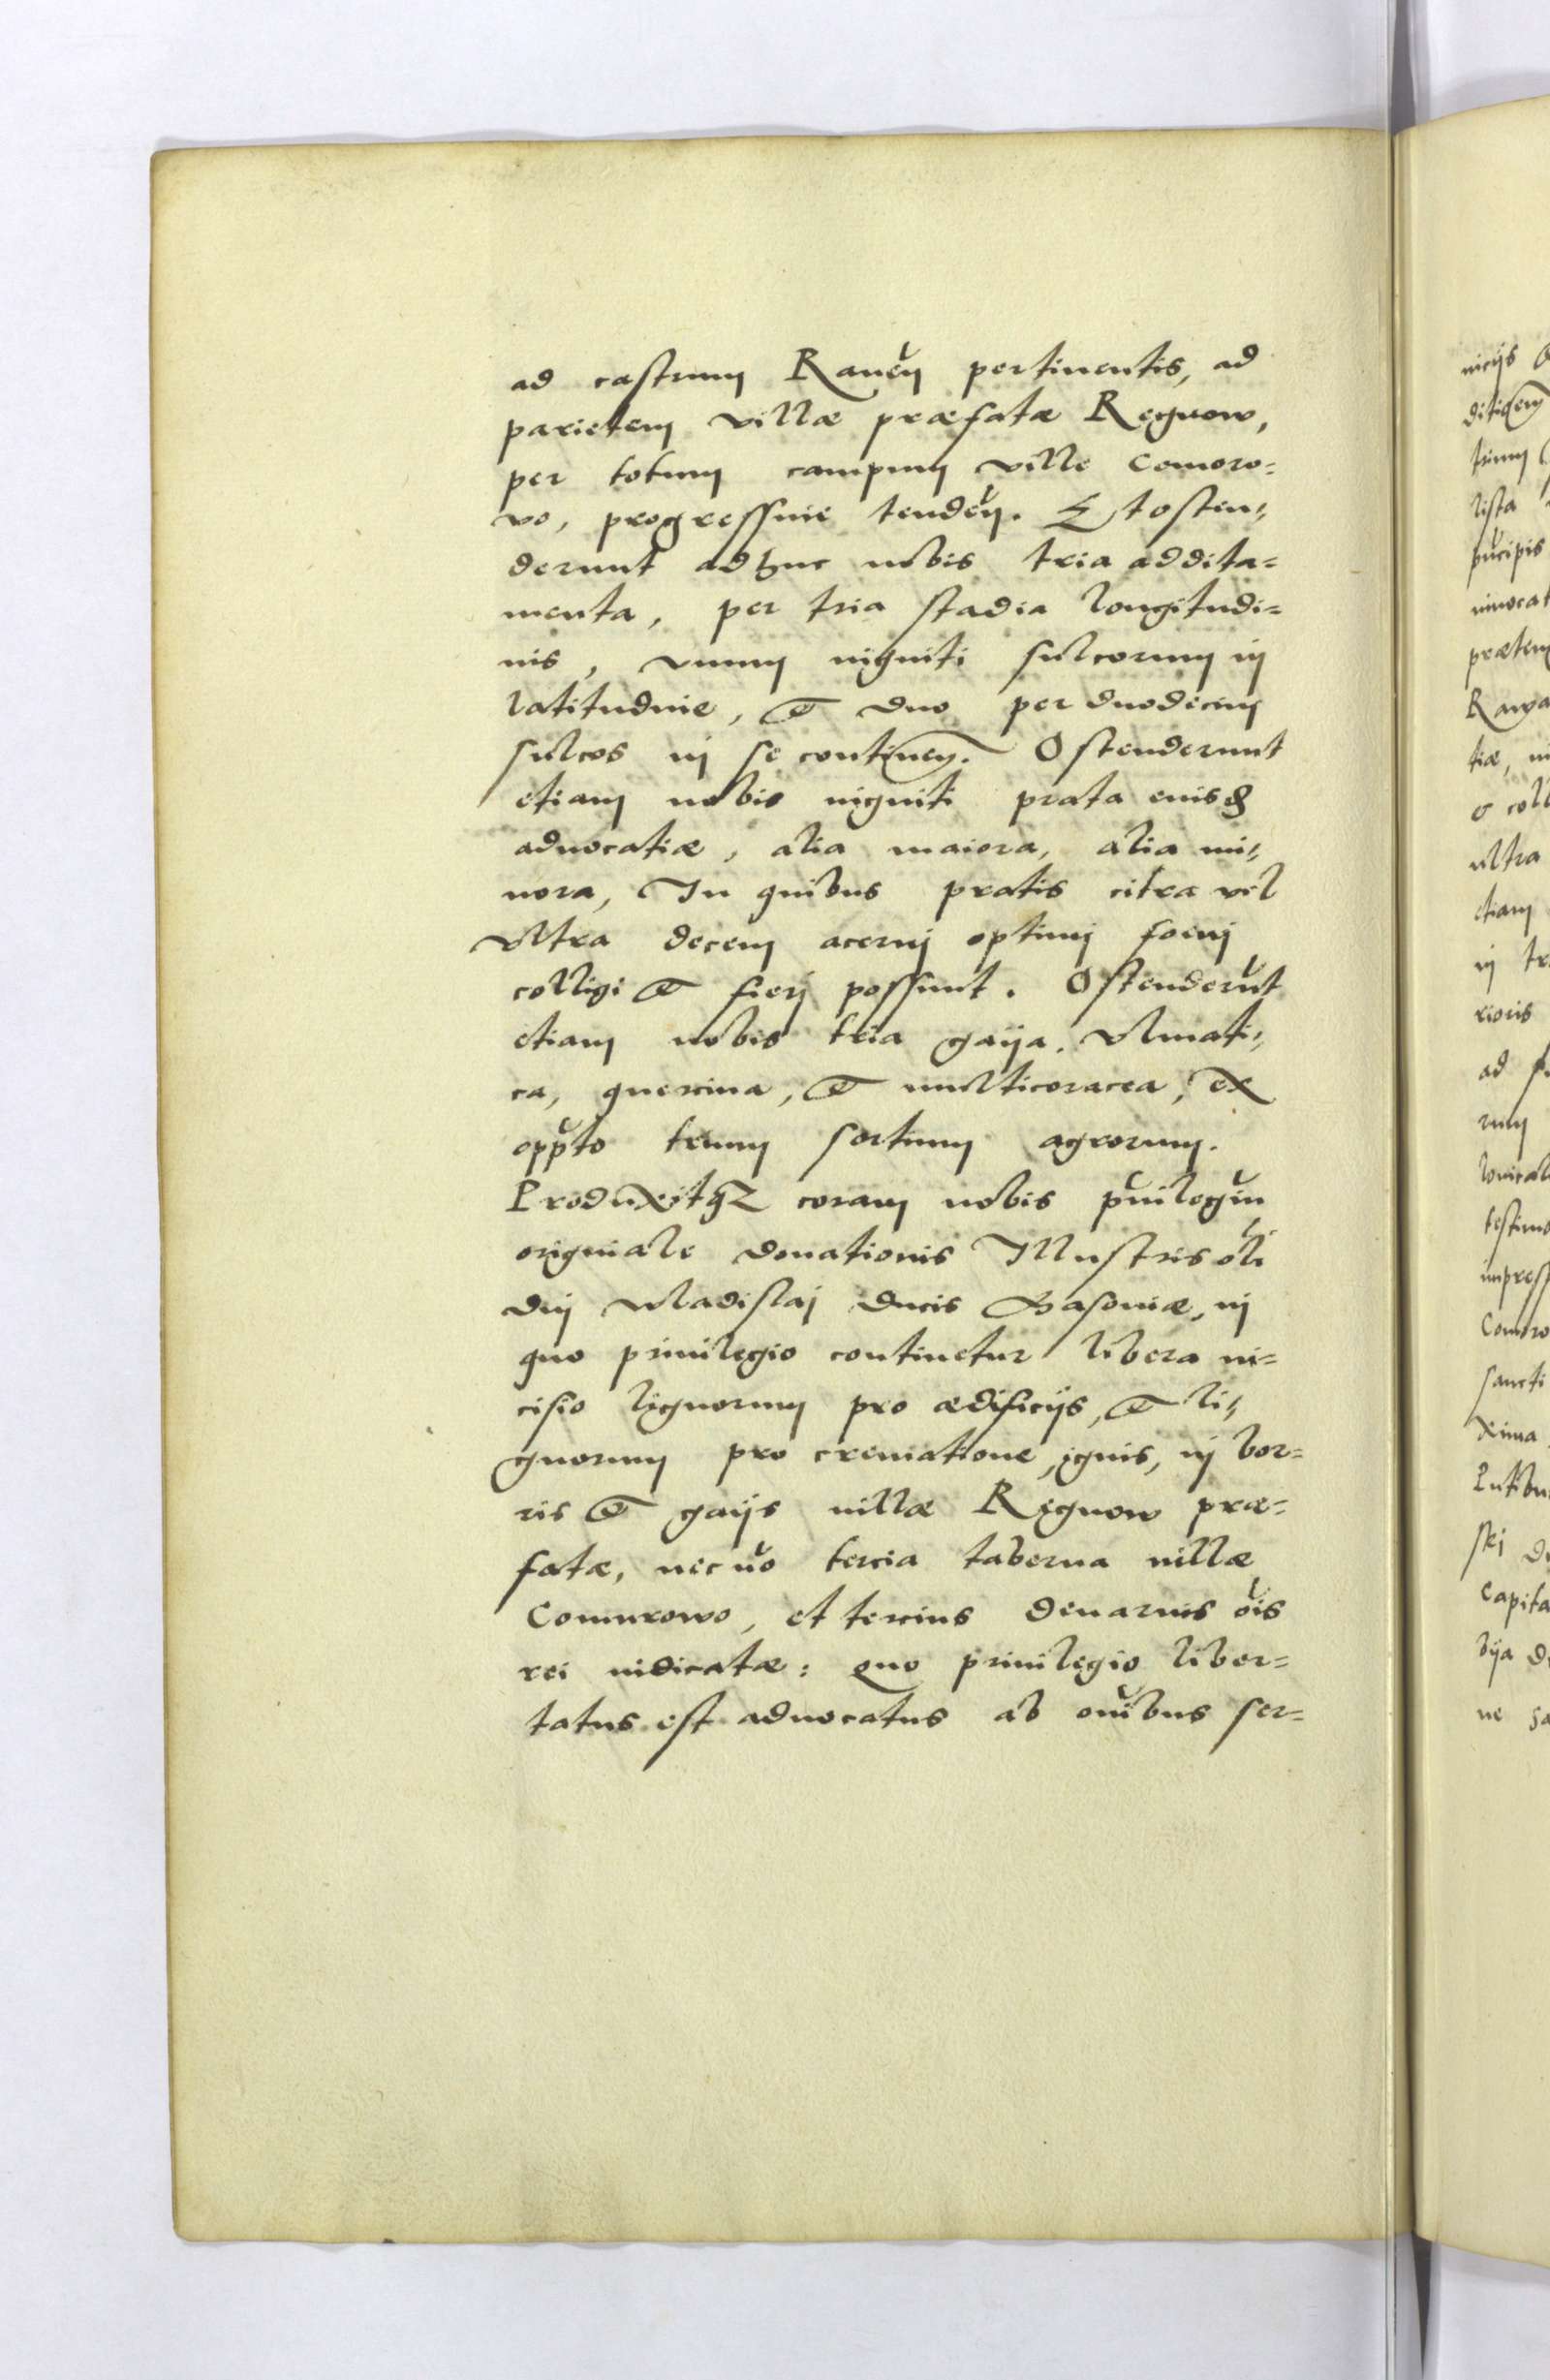 ad castrum Raueñ pertinentis, ad
parietem villæ præfatæ Regnow,
per totum campum ville Comoro=
wo, progressiue tendeñ. Et osten=
derunt adhuc nobis tria addita=
menta, per tria stadia longitudi=
nis, vnum viginti sulcorum in
latitudine, & duo per duodecim
sulcos in se contineñ. Ostenderunt
etiam nobis viginti prata eiusd
aduocatiæ, alia maiora, alia mi=
nora, In quibus pratis citra vel
vltra decem acerui optimi foeni
colligi & fierj possunt. Ostenderūt
etiam nobis tria gaija. Vlmati=
ca, quercina, & multicoracea, ex
oppto trium sortium agrorum.
Produxitqz coram nobis puilegiū
originale donationis Illustris oli
dnj Wladislaj ducis Masoviæ, in
quo priuilegio continetur libera in=
cisio lignorum pro ædificijs, & li=
gnorum pro crematione, ignis, in bor=
ris & gaijs uillæ Regnow præ=
fatæ, nec nō tercia taberna uillæ
Comorowo, et tercius denarius ōis
rei iudicatæ: quo priuilegio liber=
tatus est aduocatus ab oībus ser=
nicijs
lista
ultra
etiam
in
rioris
ad
rum
Comoro
sancti
xima
ski
Capita
bija
ne